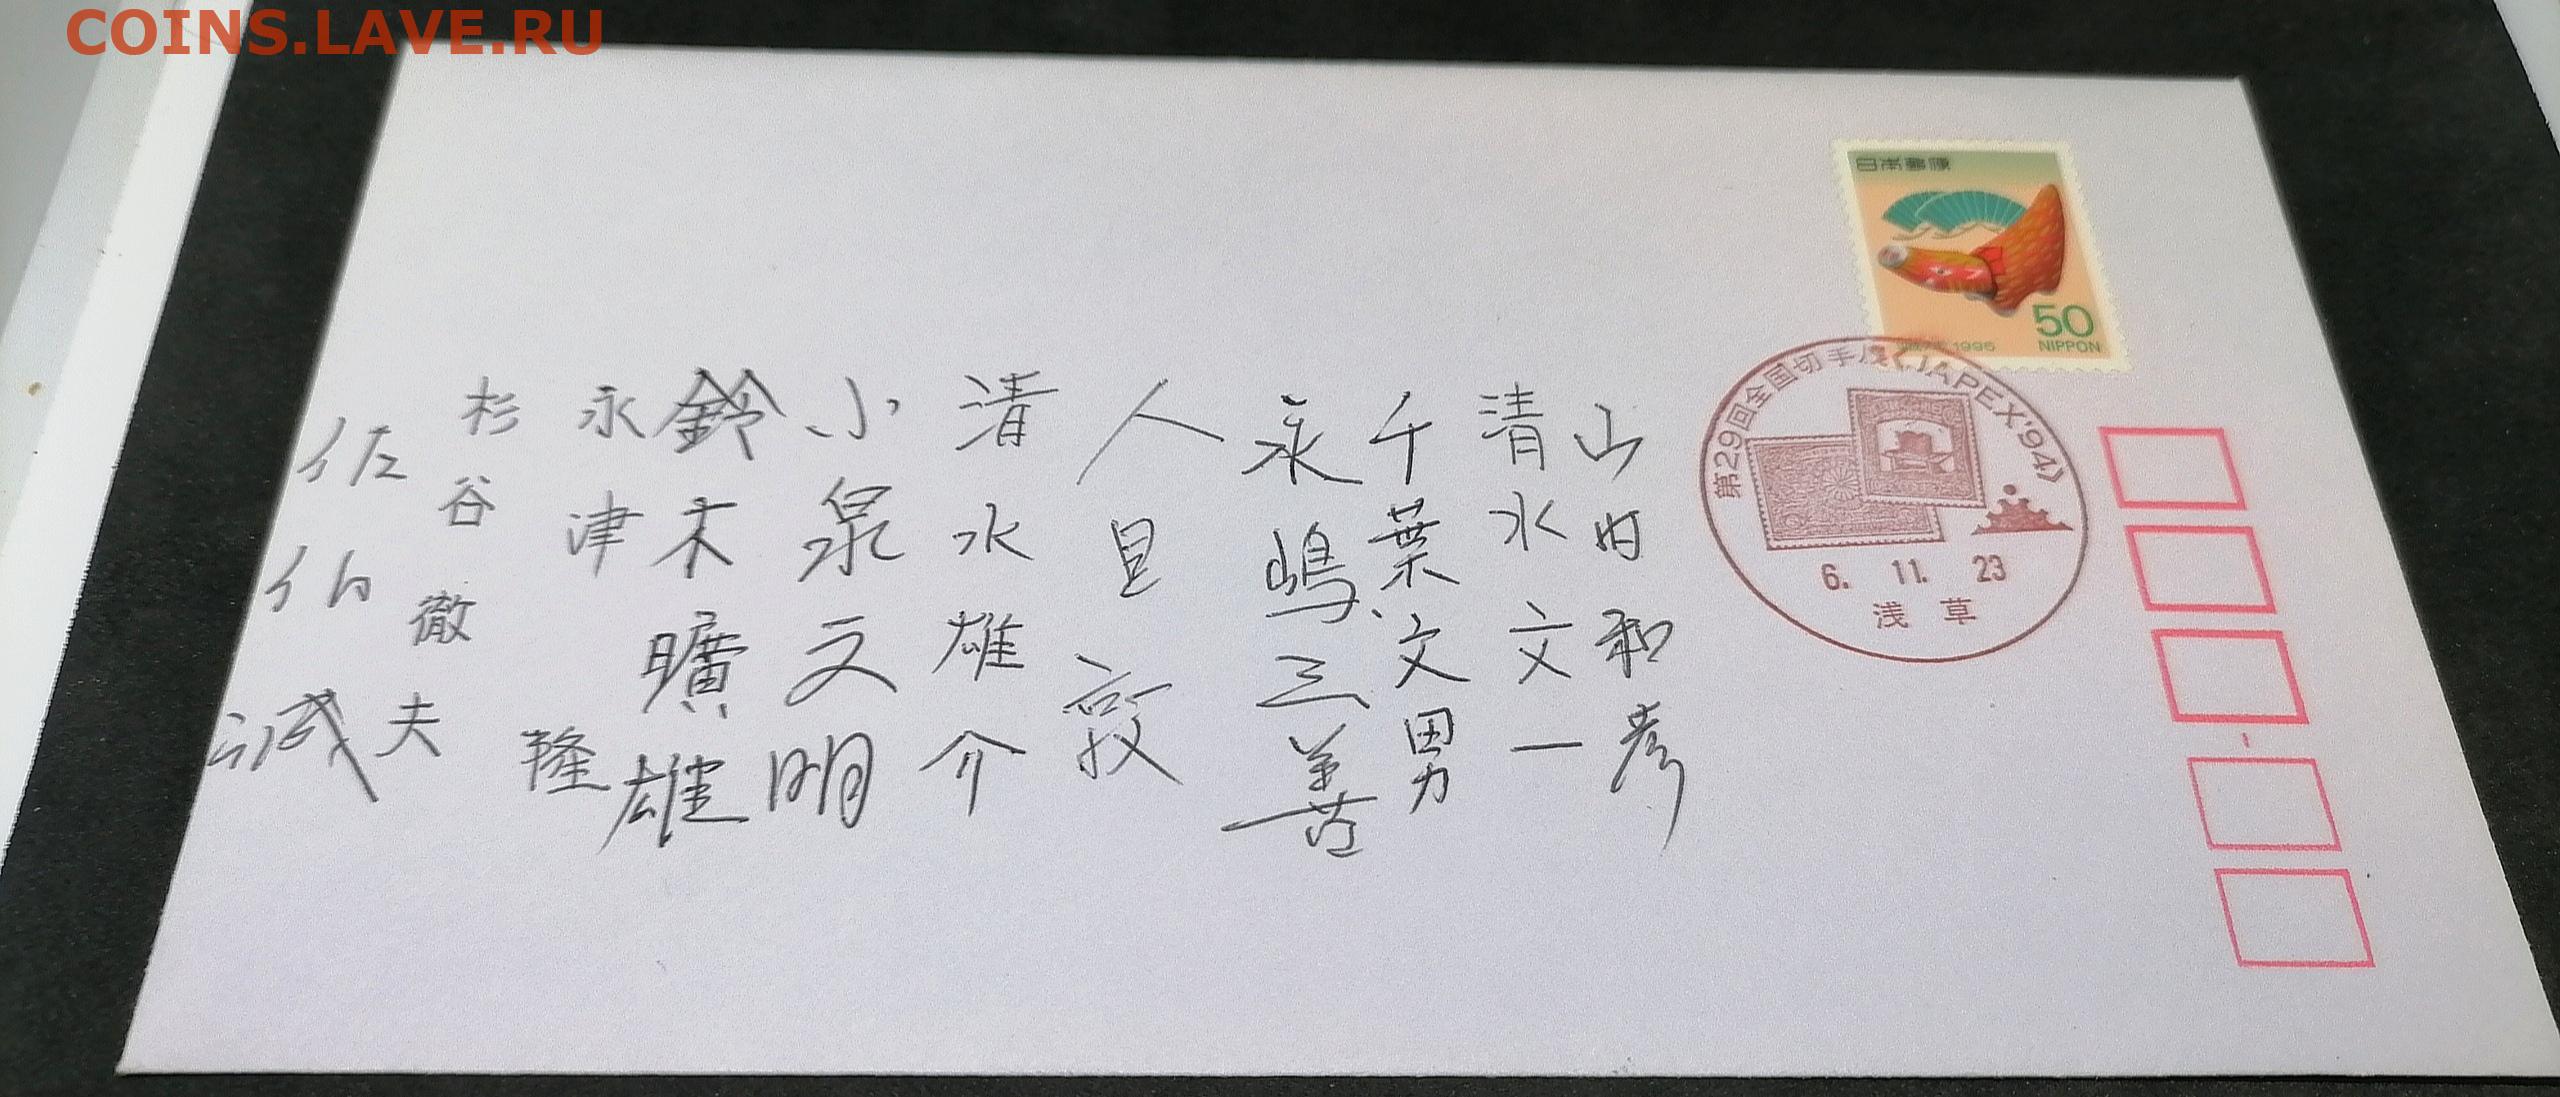 COINS.LAVE.RU
日本郵便
50
NIPPON
1995
第29回全国切手展〈JAPEX'94〉
6. 11. 23
浅草
山田和彦
清水文一
千葉文男
永嶋三善
人見敏
清水雄介
小泉文明
鈴木曠雄
永津隆
杉谷徹夫
佐伯誠